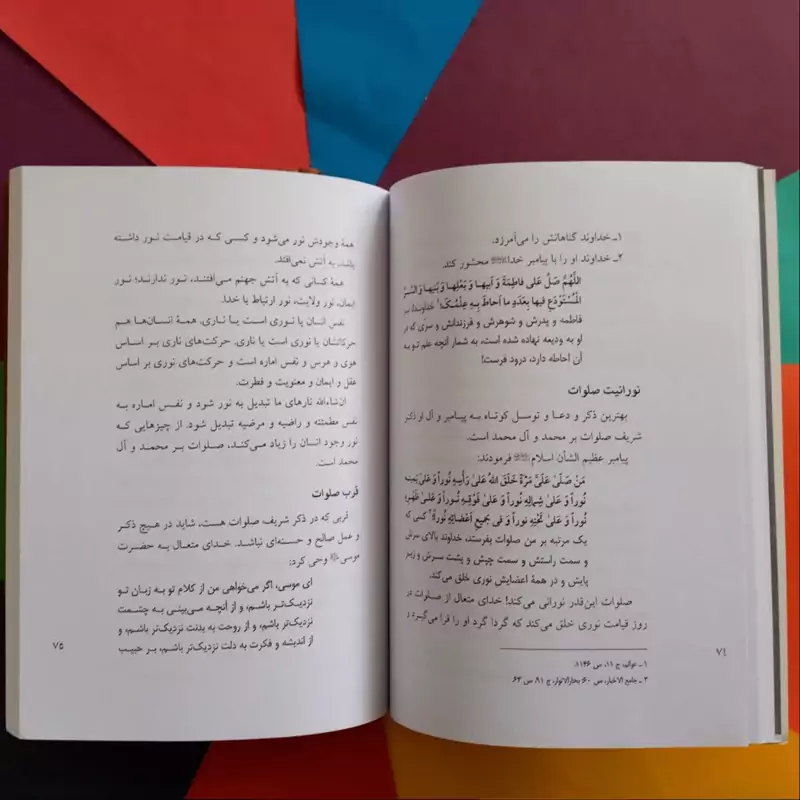 ۱ـ خداوند گناهانش را می‌آمرزد.
۲ـ خداوند او را با پیامبر خدا محشور کند
اللّهُمَّ صَلِّ عَلی فاطِمَةَ وَ اَبیها وَ بَعْلِها وَ بَنیها وَ السِّرِّ
الْمُسْتَوْدَعِ فیها بِعَدَدِ ما اَحاطَ بِهِ عِلْمُکَ¹ خداوندا، بر
فاطمه و پدرش و شوهرش و فرزندانش و سرّی که در
او به ودیعه نهاده شده است، به شمار آنچه علم تو به
آن احاطه دارد، درود فرست!
نورانیت صلوات
بهترین ذکر و دعا و توسل کوتاه به پیامبر و آل او ذکر
شریف صلوات بر محمد و آل محمد است.
پیامبر عظیم الشأن اسلام فرمودند:
مَنْ صَلّیٰ عَلَیَّ مَرَّةً خَلَقَ اللّٰهُ عَلیٰ رَأْسِهِ نُوراً وَ عَلیٰ یَمینِهِ
نُوراً وَ عَلیٰ شِمالِهِ نُوراً وَ عَلیٰ فَوْقِهِ نُوراً وَ عَلیٰ ظَهْرِهِ
نُوراً وَ عَلیٰ تَحْتِهِ نُوراً وَ فی جَمیعِ اَعْضائِهِ نُوراً² کسی که
یک مرتبه بر من صلوات بفرستد، خداوند بالای سرش
و سمت راستش و سمت چپش و پشت سرش و زیر
پایش و در همهٔ اعضایش نوری خلق می‌کند.
صلوات این‌قدر نورانی می‌کند! خدای متعال از صلوات در
روز قیامت نوری خلق می‌کند که گردا گرد او را فرا می‌گیرد و
۱ـ عوالم، ج ۱۱، ص ۱۱۴۶.
۲ـ جامع الاخبار، ص ۶۰؛ بحارالانوار، ج ۹۱، ص ۶۳.
۷۴
همهٔ وجودش نور می‌شود و کسی که در قیامت نور داشته
باشد، به آتش نمی‌افتد.
همهٔ کسانی که به آتش جهنم می‌افتند، نور ندارند؛ نور
ایمان، نور ولایت، نور ارتباط با خدا.
نفس انسان یا نوری است یا ناری. همهٔ انسان‌ها هم
حرکاتشان یا نوری است یا ناری. حرکت‌های ناری بر اساس
هوی و هوس و نفس اماره است و حرکت‌های نوری بر اساس
عقل و ایمان و معنویت و فطرت.
ان‌شاءالله نارهای ما تبدیل به نور شود و نفس اماره به
نفس مطمئنه و راضیه و مرضیه تبدیل شود. از چیزهایی که
نور وجود انسان را زیاد می‌کند، صلوات بر محمد و آل
محمد است.
قرب صلوات
قربی که در ذکر شریف صلوات هست، شاید در هیچ ذکر
و عمل صالح و حسنه‌ای نباشد. خدای متعال به حضرت
موسی وحی کرد:
ای موسی، اگر می‌خواهی من از کلام تو به زبان تو
نزدیک‌تر باشم، و از آنچه می‌بینی به چشمت
نزدیک‌تر باشم، و از روحت به بدنت نزدیک‌تر باشم، و
از اندیشه و فکرت به دلت نزدیک‌تر باشم، بر حبیب
۷۵